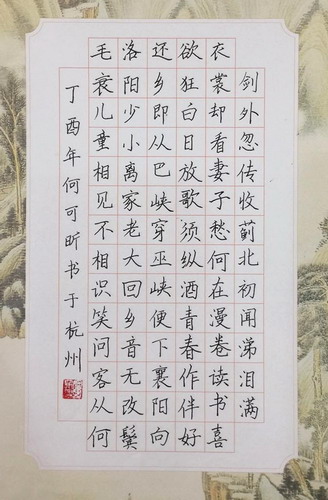 剑外忽传收蓟北初闻涕泪满
衣裳却看妻子愁何在漫卷读书喜
欲狂白日放歌须纵酒青春作伴好
还乡即从巴峡穿巫峡便下襄阳向
洛阳少小离家老大回乡音无改鬓
毛衰儿童相见不相识笑问客从何
丁酉年何可昕书于杭州